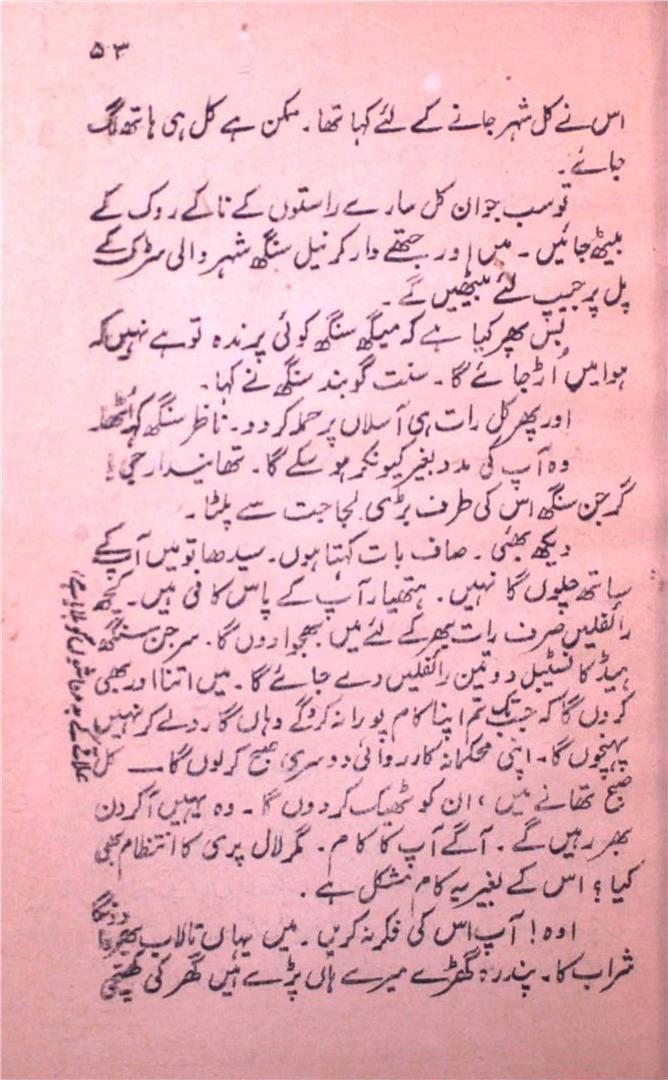 ۵۳
اس نے کل شہر جانے کے لئے کہا تھا۔ ممکن ہے کل ہی ہاتھ لگ
جائے۔
تو سب جوان کل سارے راستوں کے ناکے روک کے
بیٹھ جائیں۔ میں اور جتھے دار کرنیل سنگھ شہر والی سڑک کے
پل پر جیپ لئے بیٹھیں گے۔
بس پھر کیا ہے کہ میگھ سنگھ کوئی پرندہ تو ہے نہیں کہ
ہوا میں اُڑ جائے گا۔ سنت گوبند سنگھ نے کہا۔
اور پھر کل رات ہی آسلاں پر حملہ کر دو۔ ناظر سنگھ کہہ اُٹھا۔
وہ آپ کی مدد بغیر کیونکر ہو سکے گا۔ تھانیدار جی!
گرجن سنگھ اس کی طرف بڑی لجاجت سے پلٹا۔
دیکھ بھئی۔ صاف بات کہتا ہوں۔ سیدھا تو میں آپ کے
ساتھ چلوں گا نہیں۔ ہتھیار آپ کے پاس کافی ہیں۔ کچھ
رائفلیں صرف رات بھر کے لئے میں بھجوا دوں گا۔ سرجن سنگھ
ہیڈ کانسٹیبل دو تین رائفلیں دے جائے گا۔ میں اتنا اور بھی
کروں گا کہ جب تک تم اپنا کام پورا نہ کرو گے وہاں گارد لے کر نہیں
پہنچوں گا۔ اپنی محکمانہ کارروائی دوسری صبح کر لوں گا — کل
صبح تھانے میں، ان کو ٹھیک کر دوں گا۔ وہ یہیں آ کر دن
بھر رہیں گے۔ آگے آپ کا کام۔ مگر لال پری کا انتظام بھی
کیا؟ اس کے بغیر یہ کام مشکل ہے۔
اوہ! آپ اس کی فکر نہ کریں۔ میں یہاں تالاب بھروا دونگا
شراب کا۔ پندرہ گھڑے میرے ہاں پڑے ہیں گھر کی کھینچی
علاقے کے بدمعاشوں کو بلایا ہے،